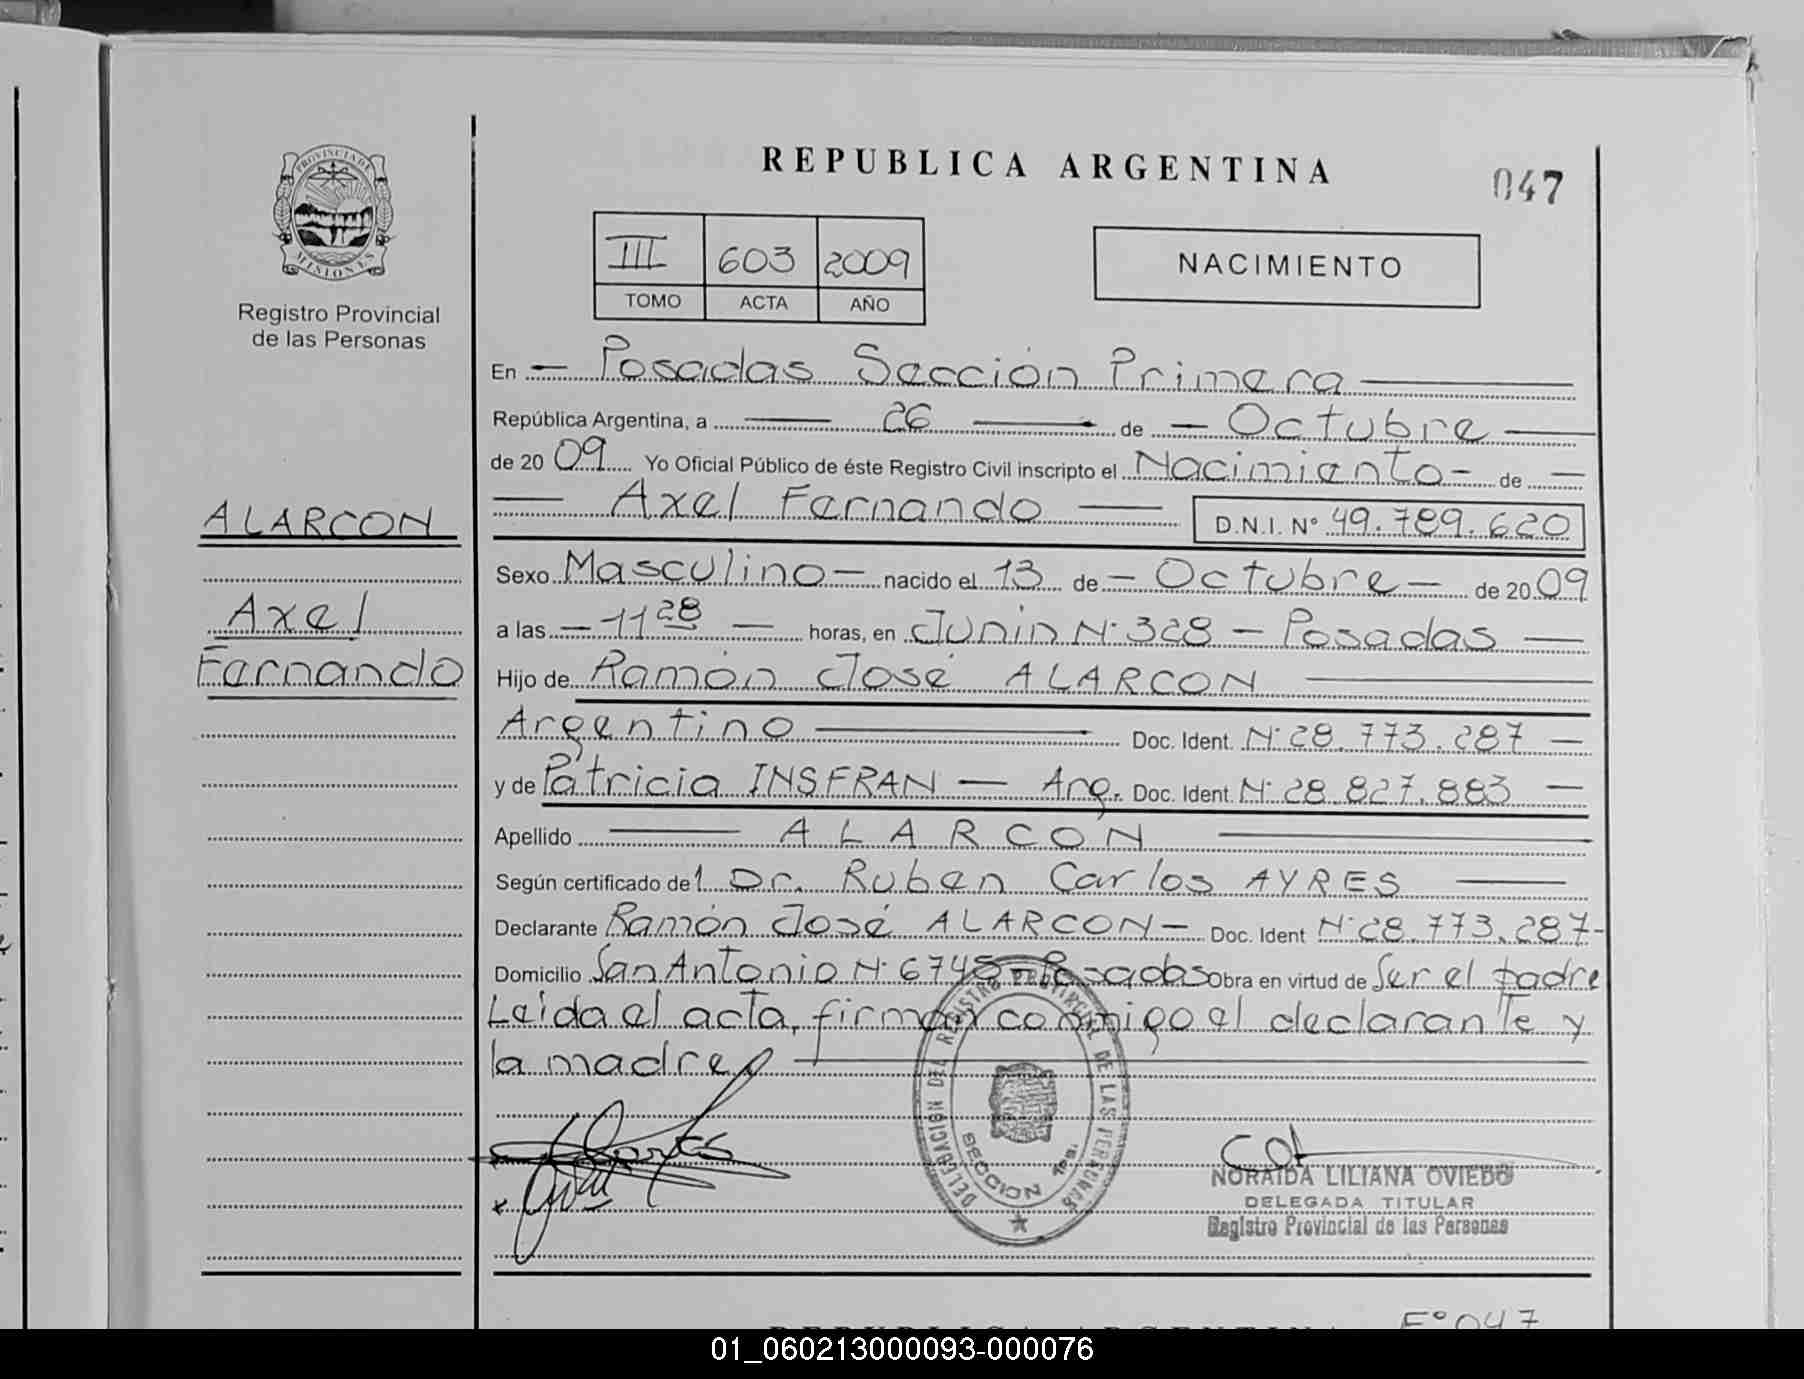 REPUBLICA ARGENTINA
047
PROVINCIA DE
MISIONES
Registro Provincial
de las Personas
III 603 2009
TOMO ACTA AÑO
NACIMIENTO
En Posadas Sección Primera
República Argentina, a 26 de Octubre
de 2009 Yo Oficial Público de éste Registro Civil inscripto el Nacimiento de
Axel Fernando D.N.I. N° 49.789.620
ALARCON
Axel
Fernando
Sexo Masculino nacido el 13 de Octubre de 2009
a las 11 28 horas, en Junin N° 328 - Posadas
Hijo de Ramón José ALARCON
Argentino Doc. Ident. N° 28.773.287
y de Patricia INSFRAN - Arg. Doc. Ident. N° 28.827.883
Apellido ALARCON
Según certificado del Dr. Ruben Carlos AYRES
Declarante Ramón José ALARCON - Doc. Ident N° 28.773.287-
Domicilio San Antonio N° 6745 - Posadas Obra en virtud de Ser el padre
Leida el acta, firman conmigo el declarante y
la madre
DELEGACIÓN DEL REGISTRO PROVINCIAL DE LAS PERSONAS
SECCION 1ra.
NORAIDA LILIANA OVIEDO
DELEGADA TITULAR
Registro Provincial de las Personas
REPUBLICA ARGENTINA
F° 047
01_060213000093-000076